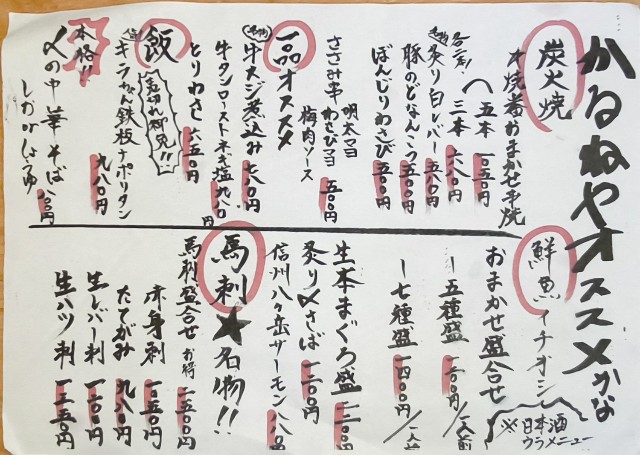 かるねやオススメかな
炭火焼
串焼番おまかせ串焼
五本 一〇五〇円
三本 六八〇円
名物!
炙り白レバー 五八〇円
豚のどなんこつ 五〇〇円
ぼんじりわさび 五〇〇円
ささみ串
明太マヨ
わさびマヨ
梅肉ソース
五〇〇円
一品オススメ
名物
牛スジ煮込み 七八〇円
牛タンローストネギ塩 九八〇円
とりわさ 六五〇円
飯
売切れ御免!!
キラちゃん鉄板ナポリタン 九八〇円
本格!!
〆の中華そば
しおorしょうゆ 八〇〇円
鮮魚イチオシ
※日本酒ウラメニュー
おまかせ盛合せ
五種盛 一一〇〇円/一人前
七種盛 一四〇〇円/一人前
生本まぐろ盛 二二〇〇円
炙り〆さば 一二〇〇円
信州八ヶ岳サーモン 八八〇円
馬刺★名物!!
馬刺盛合せ お得 二五〇〇円
赤身刺 一〇五〇円
たてがみ 九八〇円
生レバー刺 一一〇〇円
生ハツ刺 一二五〇円